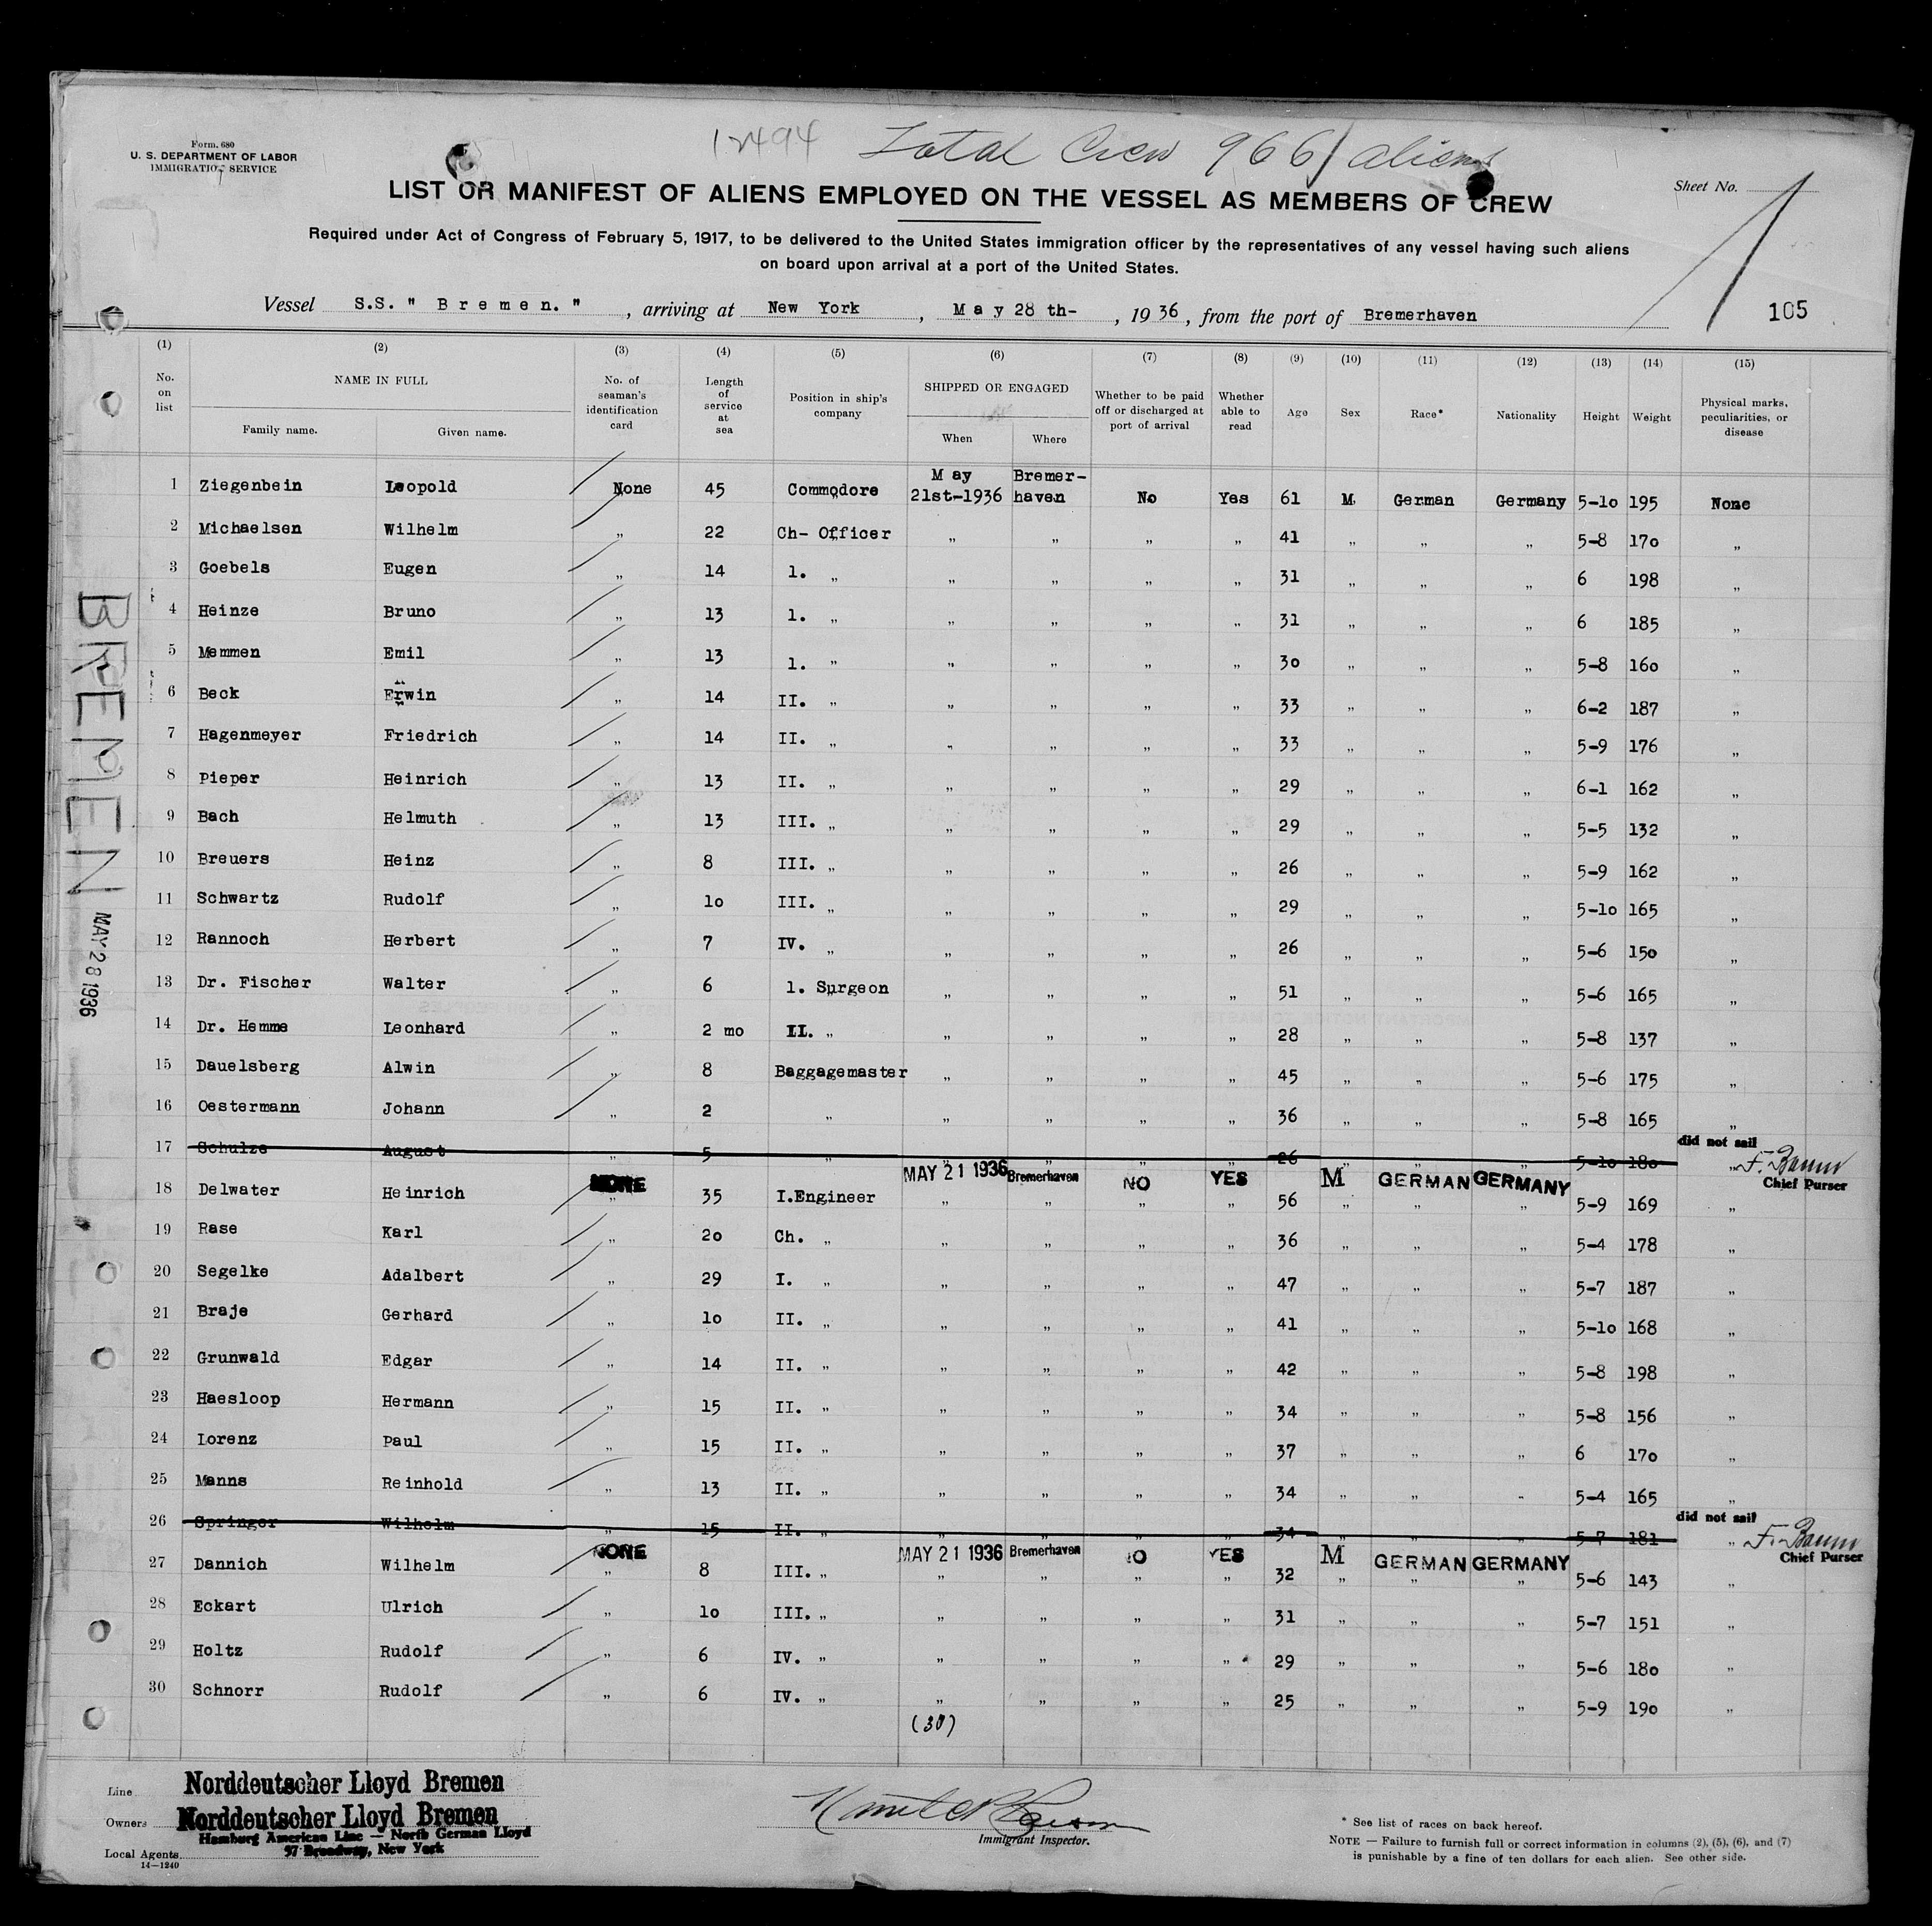 12494 Total Crew 966 aliens
Form. 680
U. S. DEPARTMENT OF LABOR
IMMIGRATION SERVICE
Sheet No. 1
LIST OR MANIFEST OF ALIENS EMPLOYED ON THE VESSEL AS MEMBERS OF CREW
Required under Act of Congress of February 5, 1917, to be delivered to the United States immigration officer by the representatives of any vessel having such aliens
on board upon arrival at a port of the United States.
Vessel S.S. " B r e m e n. " , arriving at New York , M a y 28 th- , 19 36 , from the port of Bremerhaven
105
(1) (2) (3) (4) (5) (6) (7) (8) (9) (10) (11) (12) (13) (14) (15)
No. on list NAME IN FULL Family name. Given name. No. of seaman's identification card Length of service at sea Position in ship's company SHIPPED OR ENGAGED When Where Whether to be paid off or discharged at port of arrival Whether able to read Age Sex Race* Nationality Height Weight Physical marks, peculiarities, or disease
1 Ziegenbein Leopold None 45 Commodore May 21st-1936 Bremer-haven No Yes 61 M German Germany 5-10 195 None
2 Michaelsen Wilhelm „ 22 Ch- Officer „ „ „ „ 41 „ „ „ 5-8 170 „
3 Goebels Eugen „ 14 1. „ „ „ „ „ 31 „ „ „ 6 198 „
4 Heinze Bruno „ 13 1. „ „ „ „ „ 31 „ „ „ 6 185 „
5 Memmen Emil „ 13 1. „ „ „ „ „ 30 „ „ „ 5-8 160 „
6 Beck Erwin „ 14 II. „ „ „ „ „ 33 „ „ „ 6-2 187 „
7 Hagenmeyer Friedrich „ 14 II. „ „ „ „ „ 33 „ „ „ 5-9 176 „
8 Pieper Heinrich „ 13 II. „ „ „ „ „ 29 „ „ „ 6-1 162 „
9 Bach Helmuth „ 13 III. „ „ „ „ „ 29 „ „ „ 5-5 132 „
10 Breuers Heinz „ 8 III. „ „ „ „ „ 26 „ „ „ 5-9 162 „
11 Schwartz Rudolf „ 10 III. „ „ „ „ „ 29 „ „ „ 5-10 165 „
12 Rannoch Herbert „ 7 IV. „ „ „ „ „ 26 „ „ „ 5-6 150 „
13 Dr. Fischer Walter „ 6 1. Surgeon „ „ „ „ 51 „ „ „ 5-6 165 „
14 Dr. Hemme Leonhard „ 2 mo II. „ „ „ „ „ 28 „ „ „ 5-8 137 „
15 Dauelsberg Alwin „ 8 Baggagemaster „ „ „ „ 45 „ „ „ 5-6 175 „
16 Oestermann Johann „ 2 „ „ „ „ „ 36 „ „ „ 5-8 165 „
17 Schulze August „ 5 „ „ „ „ „ 26 „ „ „ 5-10 180 „ did not sail F. Baum Chief Purser
NONE MAY 21 1936 Bremerhaven NO YES M GERMAN GERMANY
18 Delwater Heinrich „ 35 I.Engineer „ „ „ „ 56 „ „ „ 5-9 169 „
19 Rase Karl „ 20 Ch. „ „ „ „ „ 36 „ „ „ 5-4 178 „
20 Segelke Adalbert „ 29 I. „ „ „ „ „ 47 „ „ „ 5-7 187 „
21 Braje Gerhard „ 10 II. „ „ „ „ „ 41 „ „ „ 5-10 168 „
22 Grunwald Edgar „ 14 II. „ „ „ „ „ 42 „ „ „ 5-8 198 „
23 Haesloop Hermann „ 15 II. „ „ „ „ „ 34 „ „ „ 5-8 156 „
24 Lorenz Paul „ 15 II. „ „ „ „ „ 37 „ „ „ 6 170 „
25 Manns Reinhold „ 13 II. „ „ „ „ „ 34 „ „ „ 5-4 165 „
26 Springer Wilhelm „ 15 II. „ „ „ „ „ 34 „ „ „ 5-7 181 „ did not sail F. Baum Chief Purser
NONE MAY 21 1936 Bremerhaven NO YES M GERMAN GERMANY
27 Dannich Wilhelm „ 8 III. „ „ „ „ „ 32 „ „ „ 5-6 143 „
28 Eckart Ulrich „ 10 III. „ „ „ „ „ 31 „ „ „ 5-7 151 „
29 Holtz Rudolf „ 6 IV. „ „ „ „ „ 29 „ „ „ 5-6 180 „
30 Schnorr Rudolf „ 6 IV. „ „ „ „ „ 25 „ „ „ 5-9 190 „
(30)
BREMEN MAY 28 1936
Line Norddeutscher Lloyd Bremen
Owners Norddeutscher Lloyd Bremen
Hamburg American Line — North German Lloyd
Local Agents 57 Broadway, New York
14—1240
Immigrant Inspector.
* See list of races on back hereof.
NOTE — Failure to furnish full or correct information in columns (2), (5), (6), and (7)
is punishable by a fine of ten dollars for each alien. See other side.